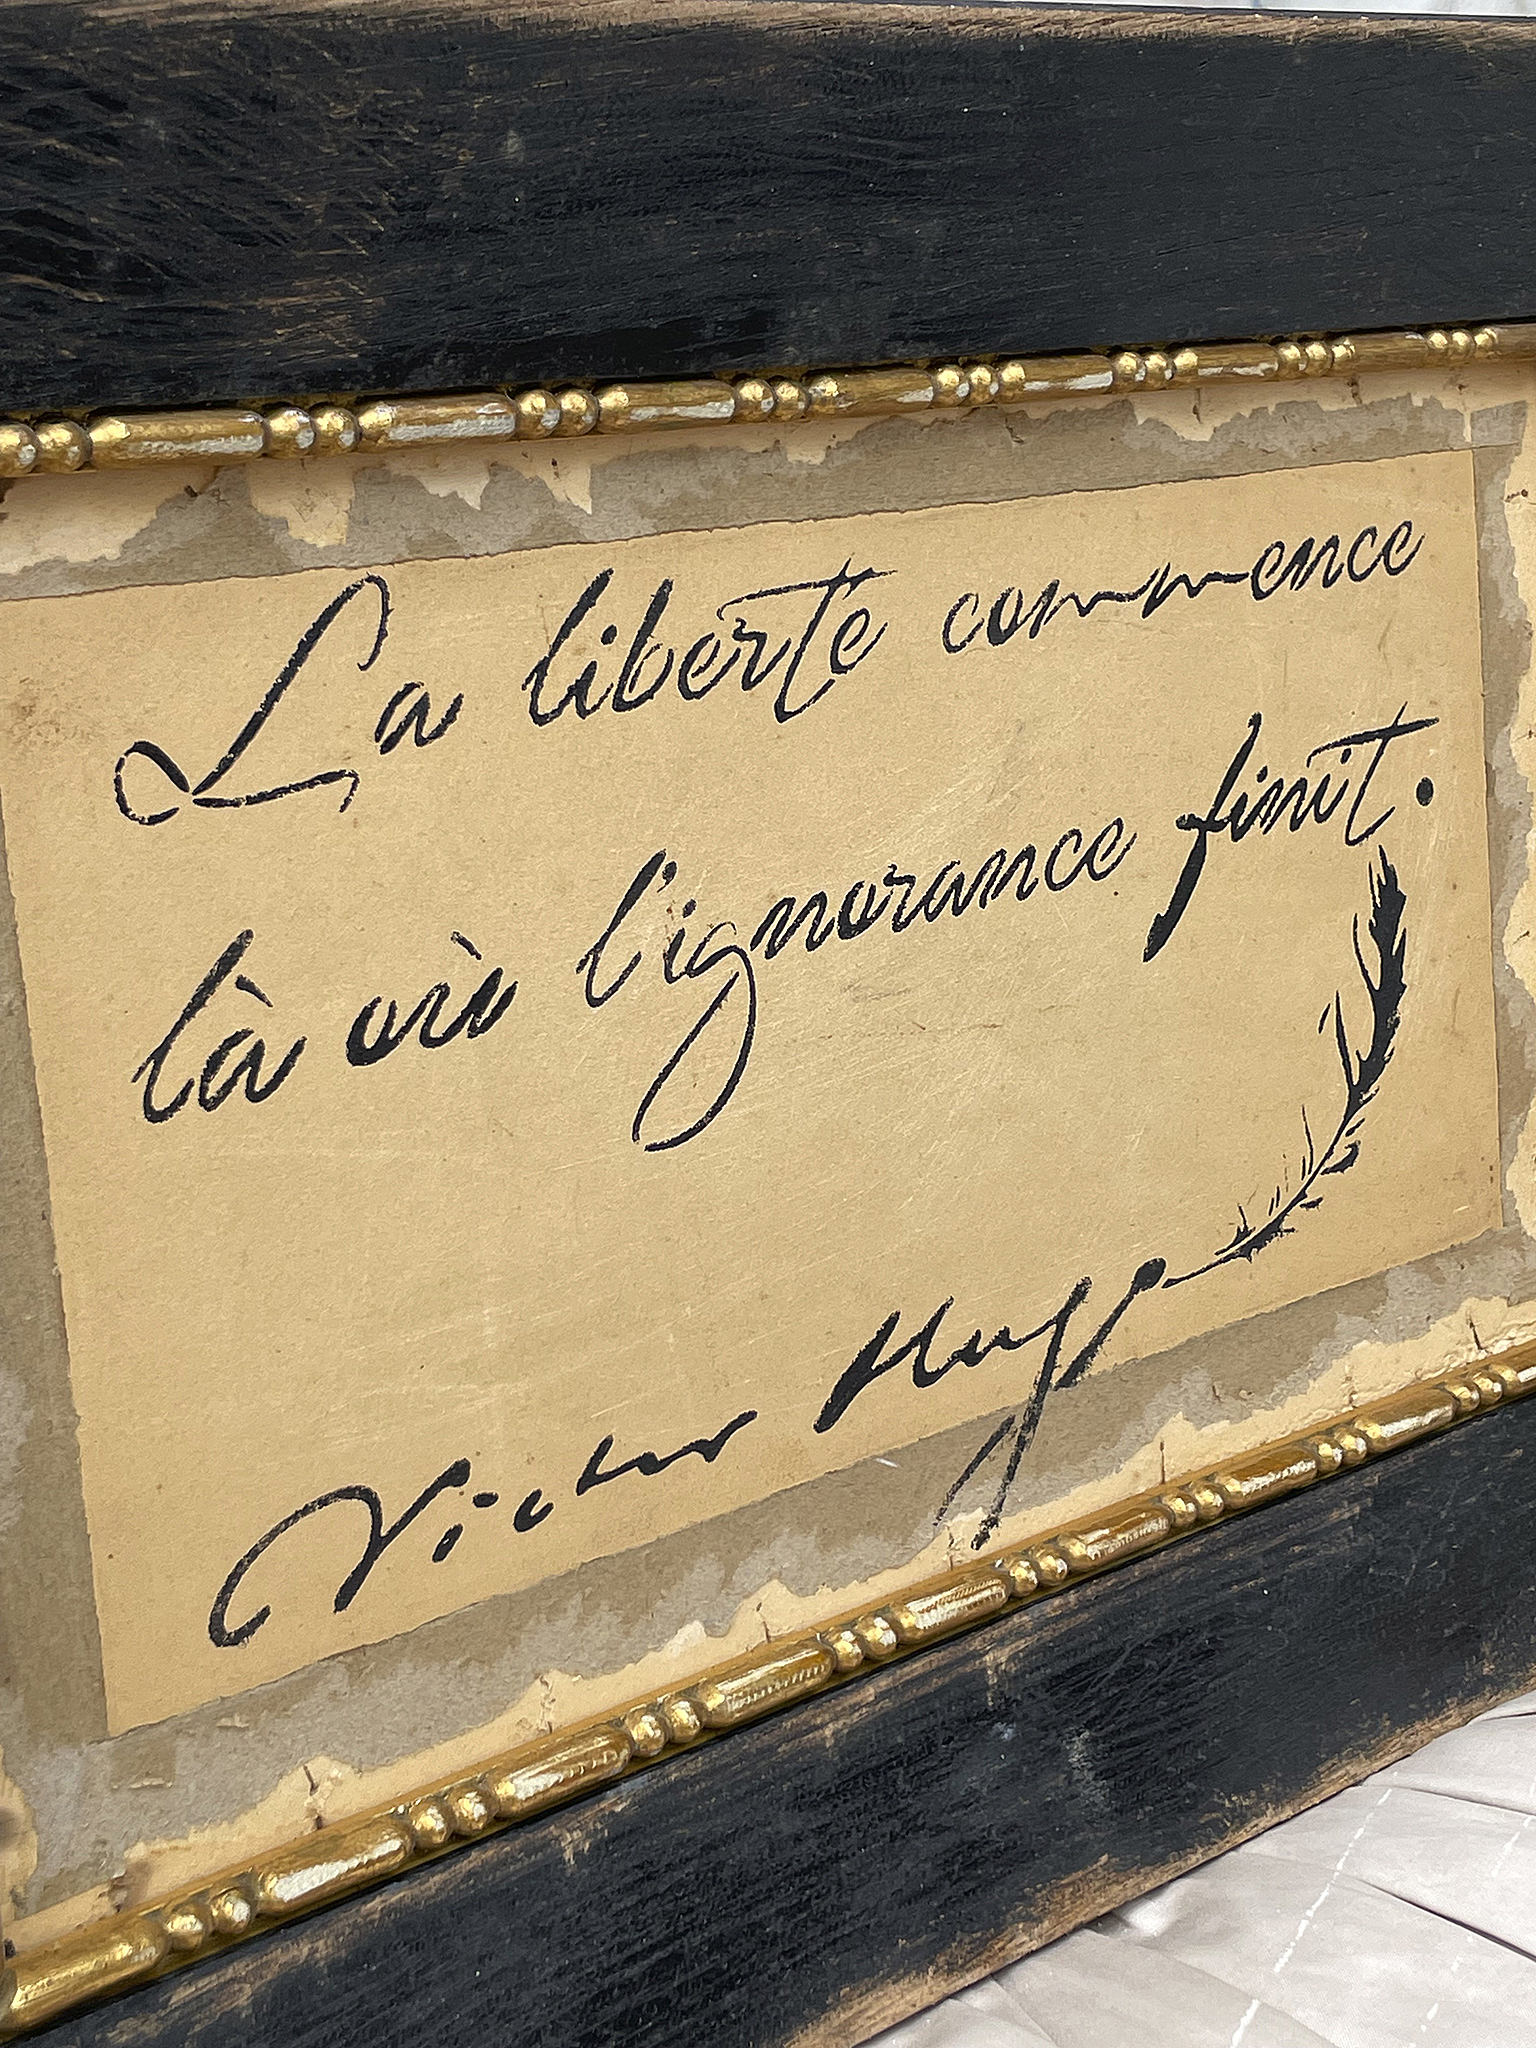 La liberte commence
là où l'ignorance finit.
Victor Hugo